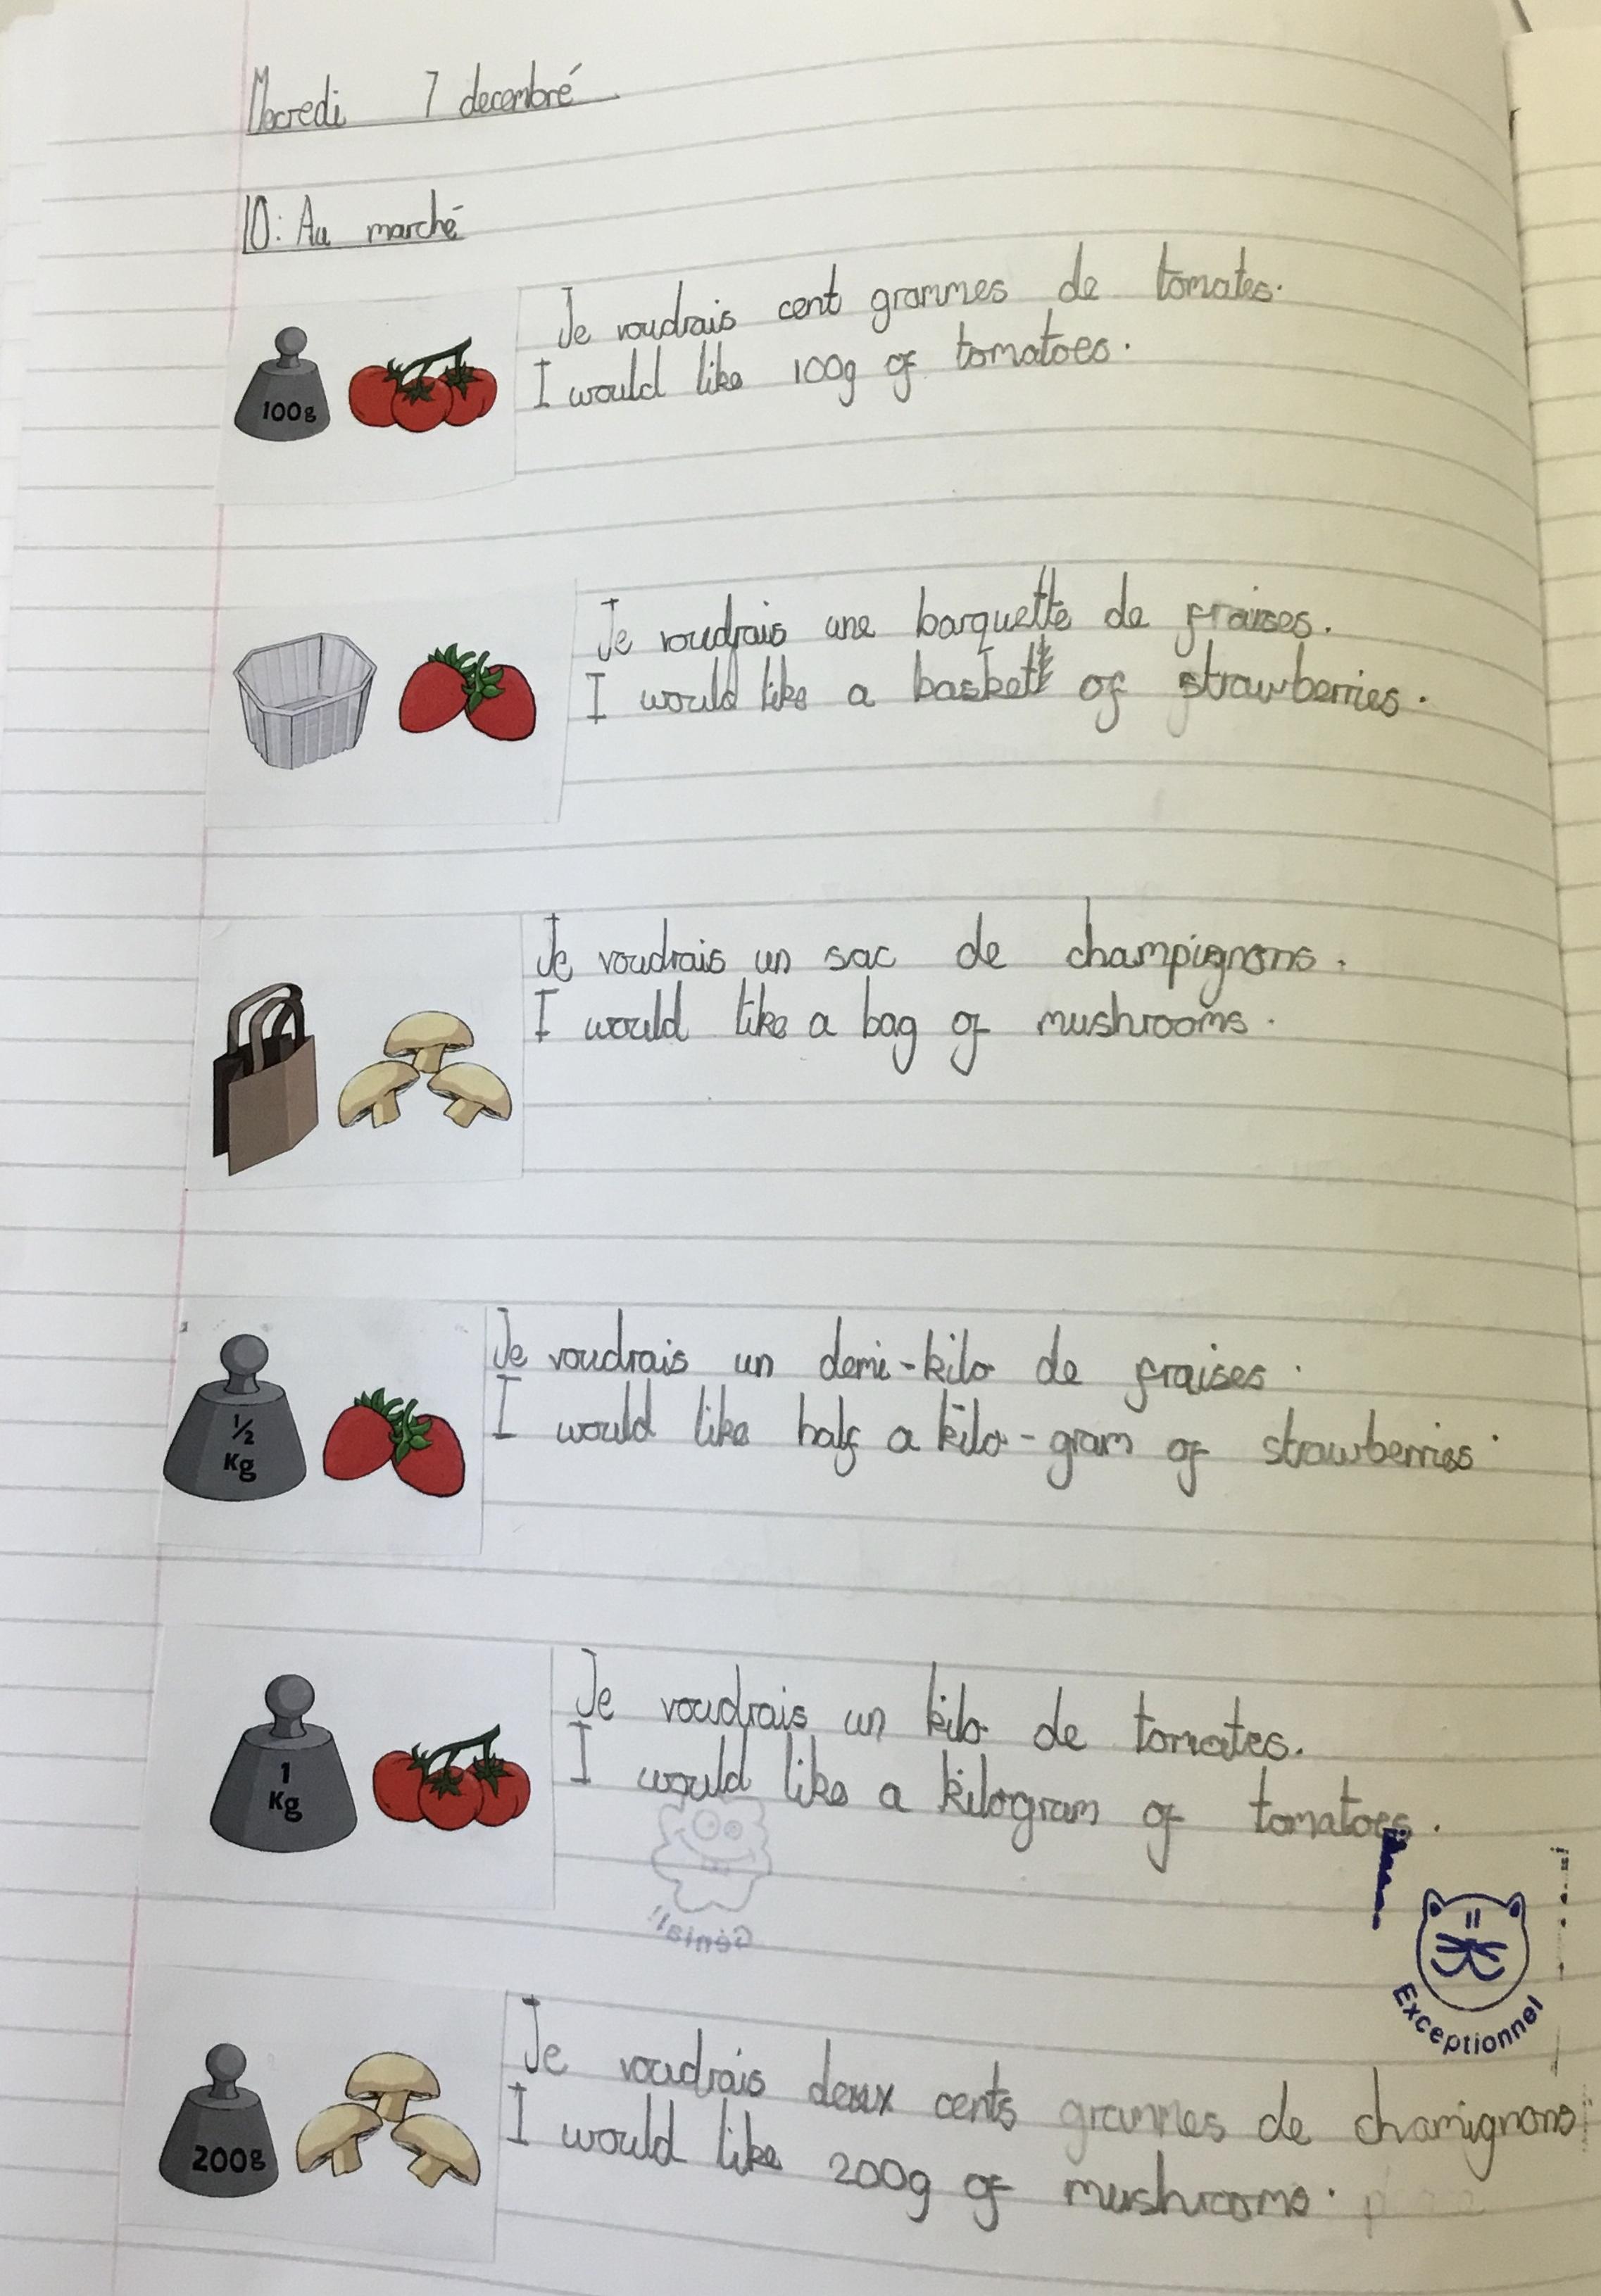 Mecredi 7 decembré
10: Au marché
100g
Je voudrais cent grammes de tomates.
I would like 100g of tomatoes.
Je voudrais une barquette de fraises.
I would like a basket of strawberries.
Je voudrais un sac de champignons.
I would like a bag of mushrooms.
1/2 Kg
Je voudrais un demi-kilo de fraises.
I would like half a kilo-gram of strawberries.
1 Kg
Je voudrais un kilo de tomates.
I would like a kilogram of tomatoes.
Génial!
Exceptionnel
200g
Je voudrais deux cents grammes de chamignons
I would like 200g of mushrooms.